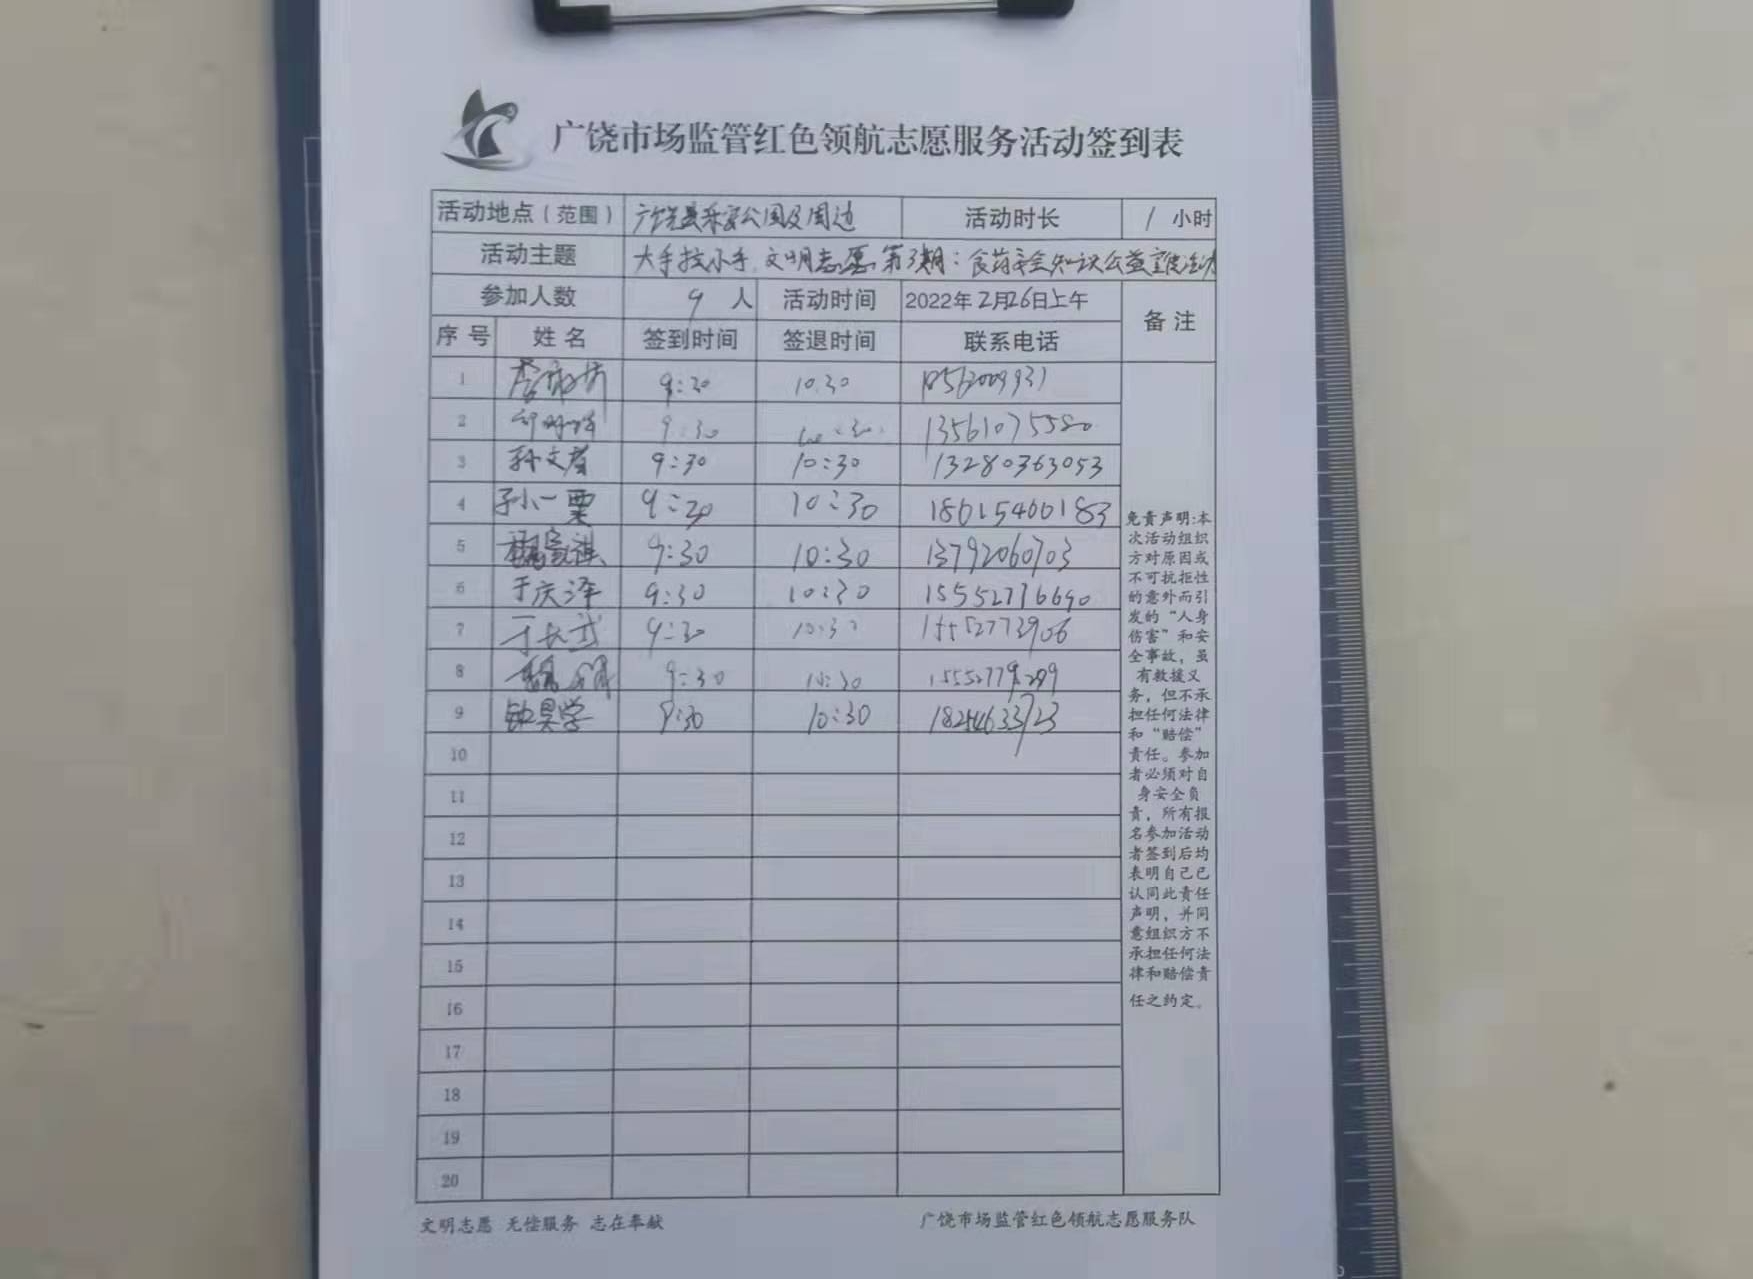 广饶市场监管红色领航志愿服务活动签到表
活动地点（范围） 广饶县乐安公园及周边 活动时长 1 小时
活动主题 大手拉小手 文明志愿 第3期：食药安全知识公益宣传活动
参加人数 9 人 活动时间 2022年2月26日上午 备注
序号 姓名 签到时间 签退时间 联系电话
1 9:30 10:30
2 9:30 10:30 13561075580
3 孙文 9:30 10:30 13280363053
4 孙一粟 9:30 10:30 18615400183
5 9:30 10:30 13792060703
6 于庆泽 9:30 10:30 15552776690
7 于 9:30 10:30 15552773906
8 9:30 10:30
9 钟昊学 9:30 10:30
10
11
12
13
14
15
16
17
18
19
20
免责声明:本
次活动组织
方对原因或
不可抗拒性
的意外而引
发的“人身
伤害”和安
全事故，虽
有救援义
务，但不承
担任何法律
和“赔偿”
责任。参加
者必须对自
身安全负
责，所有报
名参加活动
者签到后均
表明自己已
认同此责任
声明，并同
意组织方不
承担任何法
律和赔偿责
任之约定。
文明志愿 无偿服务 志在奉献 广饶市场监管红色领航志愿服务队